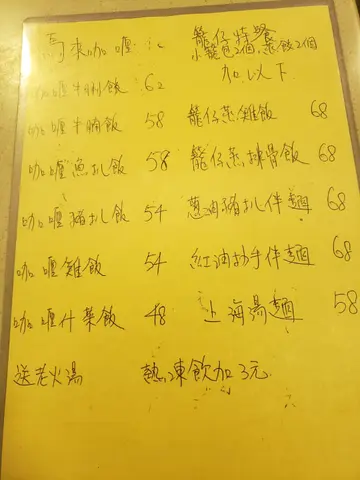 馬來咖喱
咖喱牛脷飯 62
咖喱牛腩飯 58
咖喱魚扒飯 58
咖喱豬扒飯 54
咖喱雞飯 54
咖喱什菜飯 48
籠仔特餐
小籠包2個,蒸餃2個
加以下
籠仔蒸雞飯 68
籠仔蒸排骨飯 68
蔥油豬扒伴麵 68
紅油抄手伴麵 68
上海湯麵 58
送老火湯 熱凍飲加3元